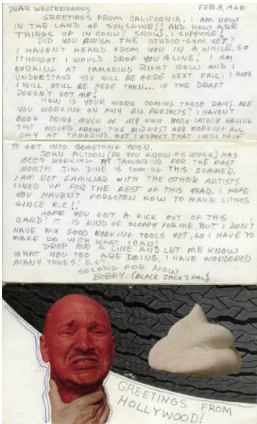 DEAR WESTERMANNS
FEB 8, 1968
GREETINGS FROM CALIFORNIA. I AM NOW
IN THE LAND OF SUNSHINE!! AND HOW ARE
THINGS UP IN CONN? SNOW, I SUPPOSE!
DID YOU FINISH THE STUDIO-GYM YET?
I HAVEN'T HEARD FROM YOU IN A WHILE, SO
I THOUGHT I WOULD DROP YOU A LINE! I AM
WORKING AT TAMARIND RIGHT NOW AND I
UNDERSTAND YOU WILL BE HERE NEXT FALL. I HOPE
I WILL STILL BE HERE THEN... IF THE DRAFT
DOESN'T GET ME!
HOW IS YOUR WORK COMING THESE DAYS? ARE
YOU WORKING ON ANY BIG PROJECTS? I HAVEN'T
BEEN DOING MUCH OF MY OWN WORK LATELY HAVING
JUST MOVED FROM THE MIDWEST AND WORKING ALL
DAY AT TAMARIND BUT I EXPECT THAT I WILL HAVE
TO GET INTO SOMETHING SOON.
JOHN ALTOON (DO YOU KNOW HIS WORK) HAS
BEEN WORKING AT TAMARIND FOR THE PAST
MONTH. JIM DINE IS COMING THIS SUMMER.
I AM NOT FAMILIAR WITH THE OTHER ARTISTS
LINED UP FOR THE REST OF THIS YEAR. I HOPE
YOU HAVEN'T FORGOTTEN HOW TO MAKE LITHOS
SINCE K.C.!!
HOPE YOU GET A KICK OUT OF THIS
CARD! IT IS KIND OF SLOPPY FOR ME, BUT I DON'T
HAVE MY GOOD WORKING TOOLS YET, SO I HAVE TO
MAKE DO WITH WHAT I CAN!
DROP ME A LINE AND LET ME KNOW
WHAT YOU TOO ARE DOING. I HAVE WONDERED
MANY TIMES!
SO LONG FOR NOW
BOBBY
GREETINGS FROM
HOLLYWOOD!